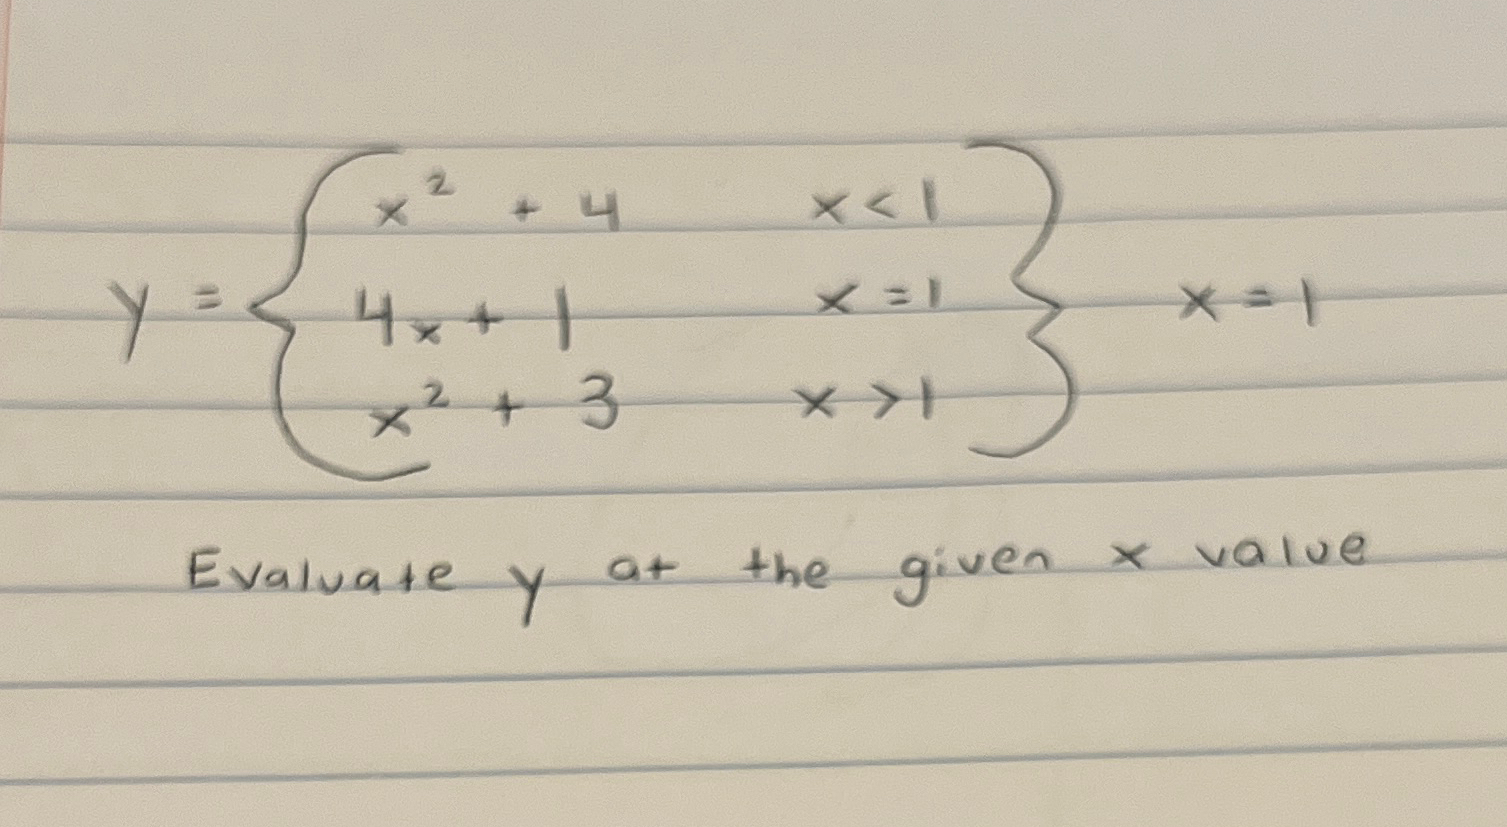 x² + 4 x < 1
y = { 4x + 1 x = 1 } x = 1
x² + 3 x > 1
Evaluate y at the given x value